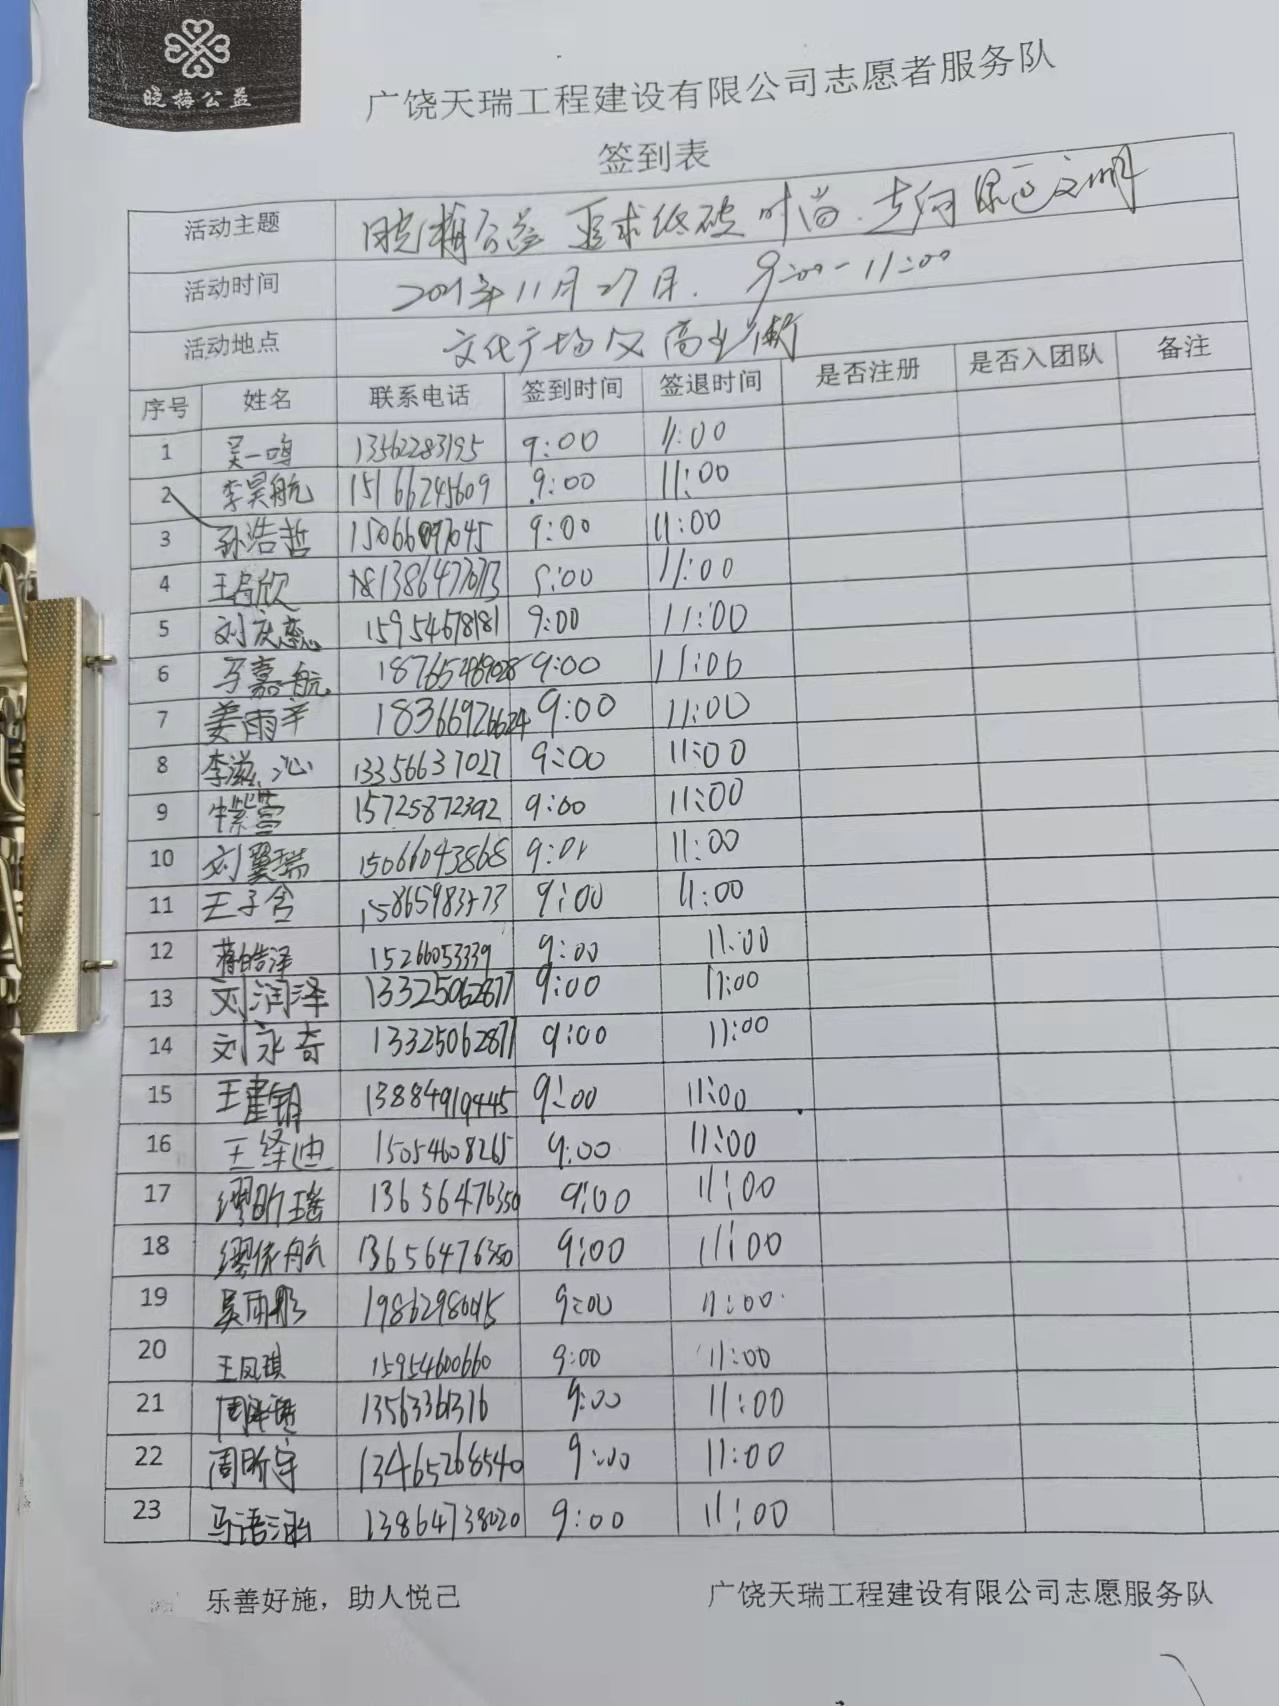 晓梅公益
广饶天瑞工程建设有限公司志愿者服务队
签到表
活动主题 晓梅公益 追求低碳时尚.走向绿色文明
活动时间 2021年11月27日. 9:00-11:00
活动地点 文化广场及商业街
序号 姓名 联系电话 签到时间 签退时间 是否注册 是否入团队 备注
1 吴一鸣 13562283195 9:00 11:00
2 李昊航 15166245609 9:00 11:00
3 孙浩哲 9:00 11:00
4 11:00
5 刘庆蕊 15954678181 9:00 11:00
6 马嘉航 9:00 11:00
7 姜雨辛 18366926624 9:00 11:00
8 李滋沁 13356637027 9:00 11:00
9 15725872392 9:00 11:00
10 刘翼瑞 15066043868 9:01 11:00
11 王子含 9:00 11:00
12 蒋皓泽 15266053339 9:00 11:00
13 刘润泽 13325062877 9:00 11:00
14 刘永奇 13325062877 9:00 11:00
15 13884919445 9:00 11:00
16 王绎迪 15054608265 9:00 11:00
17 缪昕瑶 13656476350 9:00 11:00
18 缪依航 13656476350 9:00 11:00
19 吴雨彤 9:00 11:00
20 王凤琪 15954600660 9:00 11:00
21 13563361316 9:00 11:00
22 周昕宇 13465268540 9:00 11:00
23 马语涵 13864738020 9:00 11:00
乐善好施，助人悦己 广饶天瑞工程建设有限公司志愿服务队